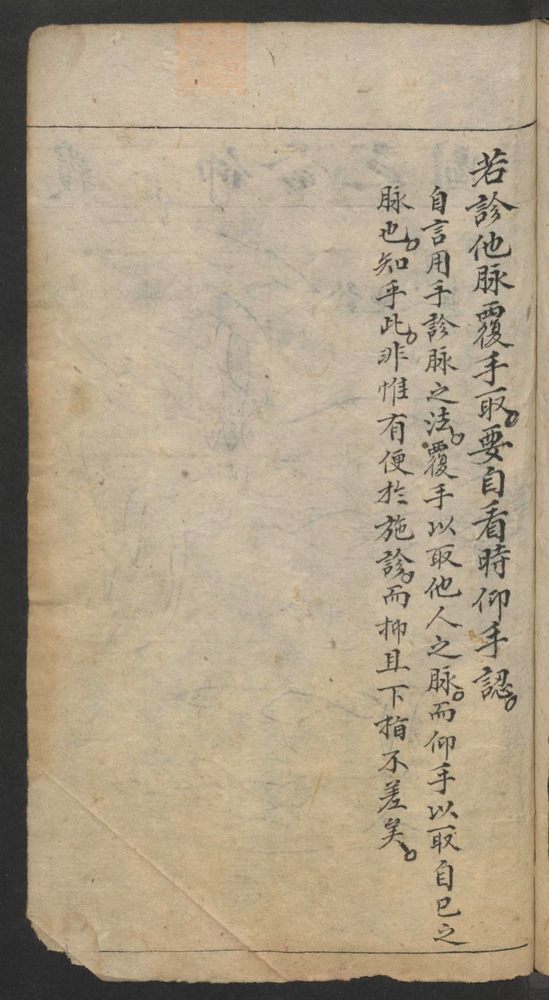 若診他脉覆手取。要自看時仰手認。
自言用手診脉之法。覆手以取他人之脉。而仰手以取自已之
脉也。知乎此。非惟有便於施診。而抑且下指不差矣。